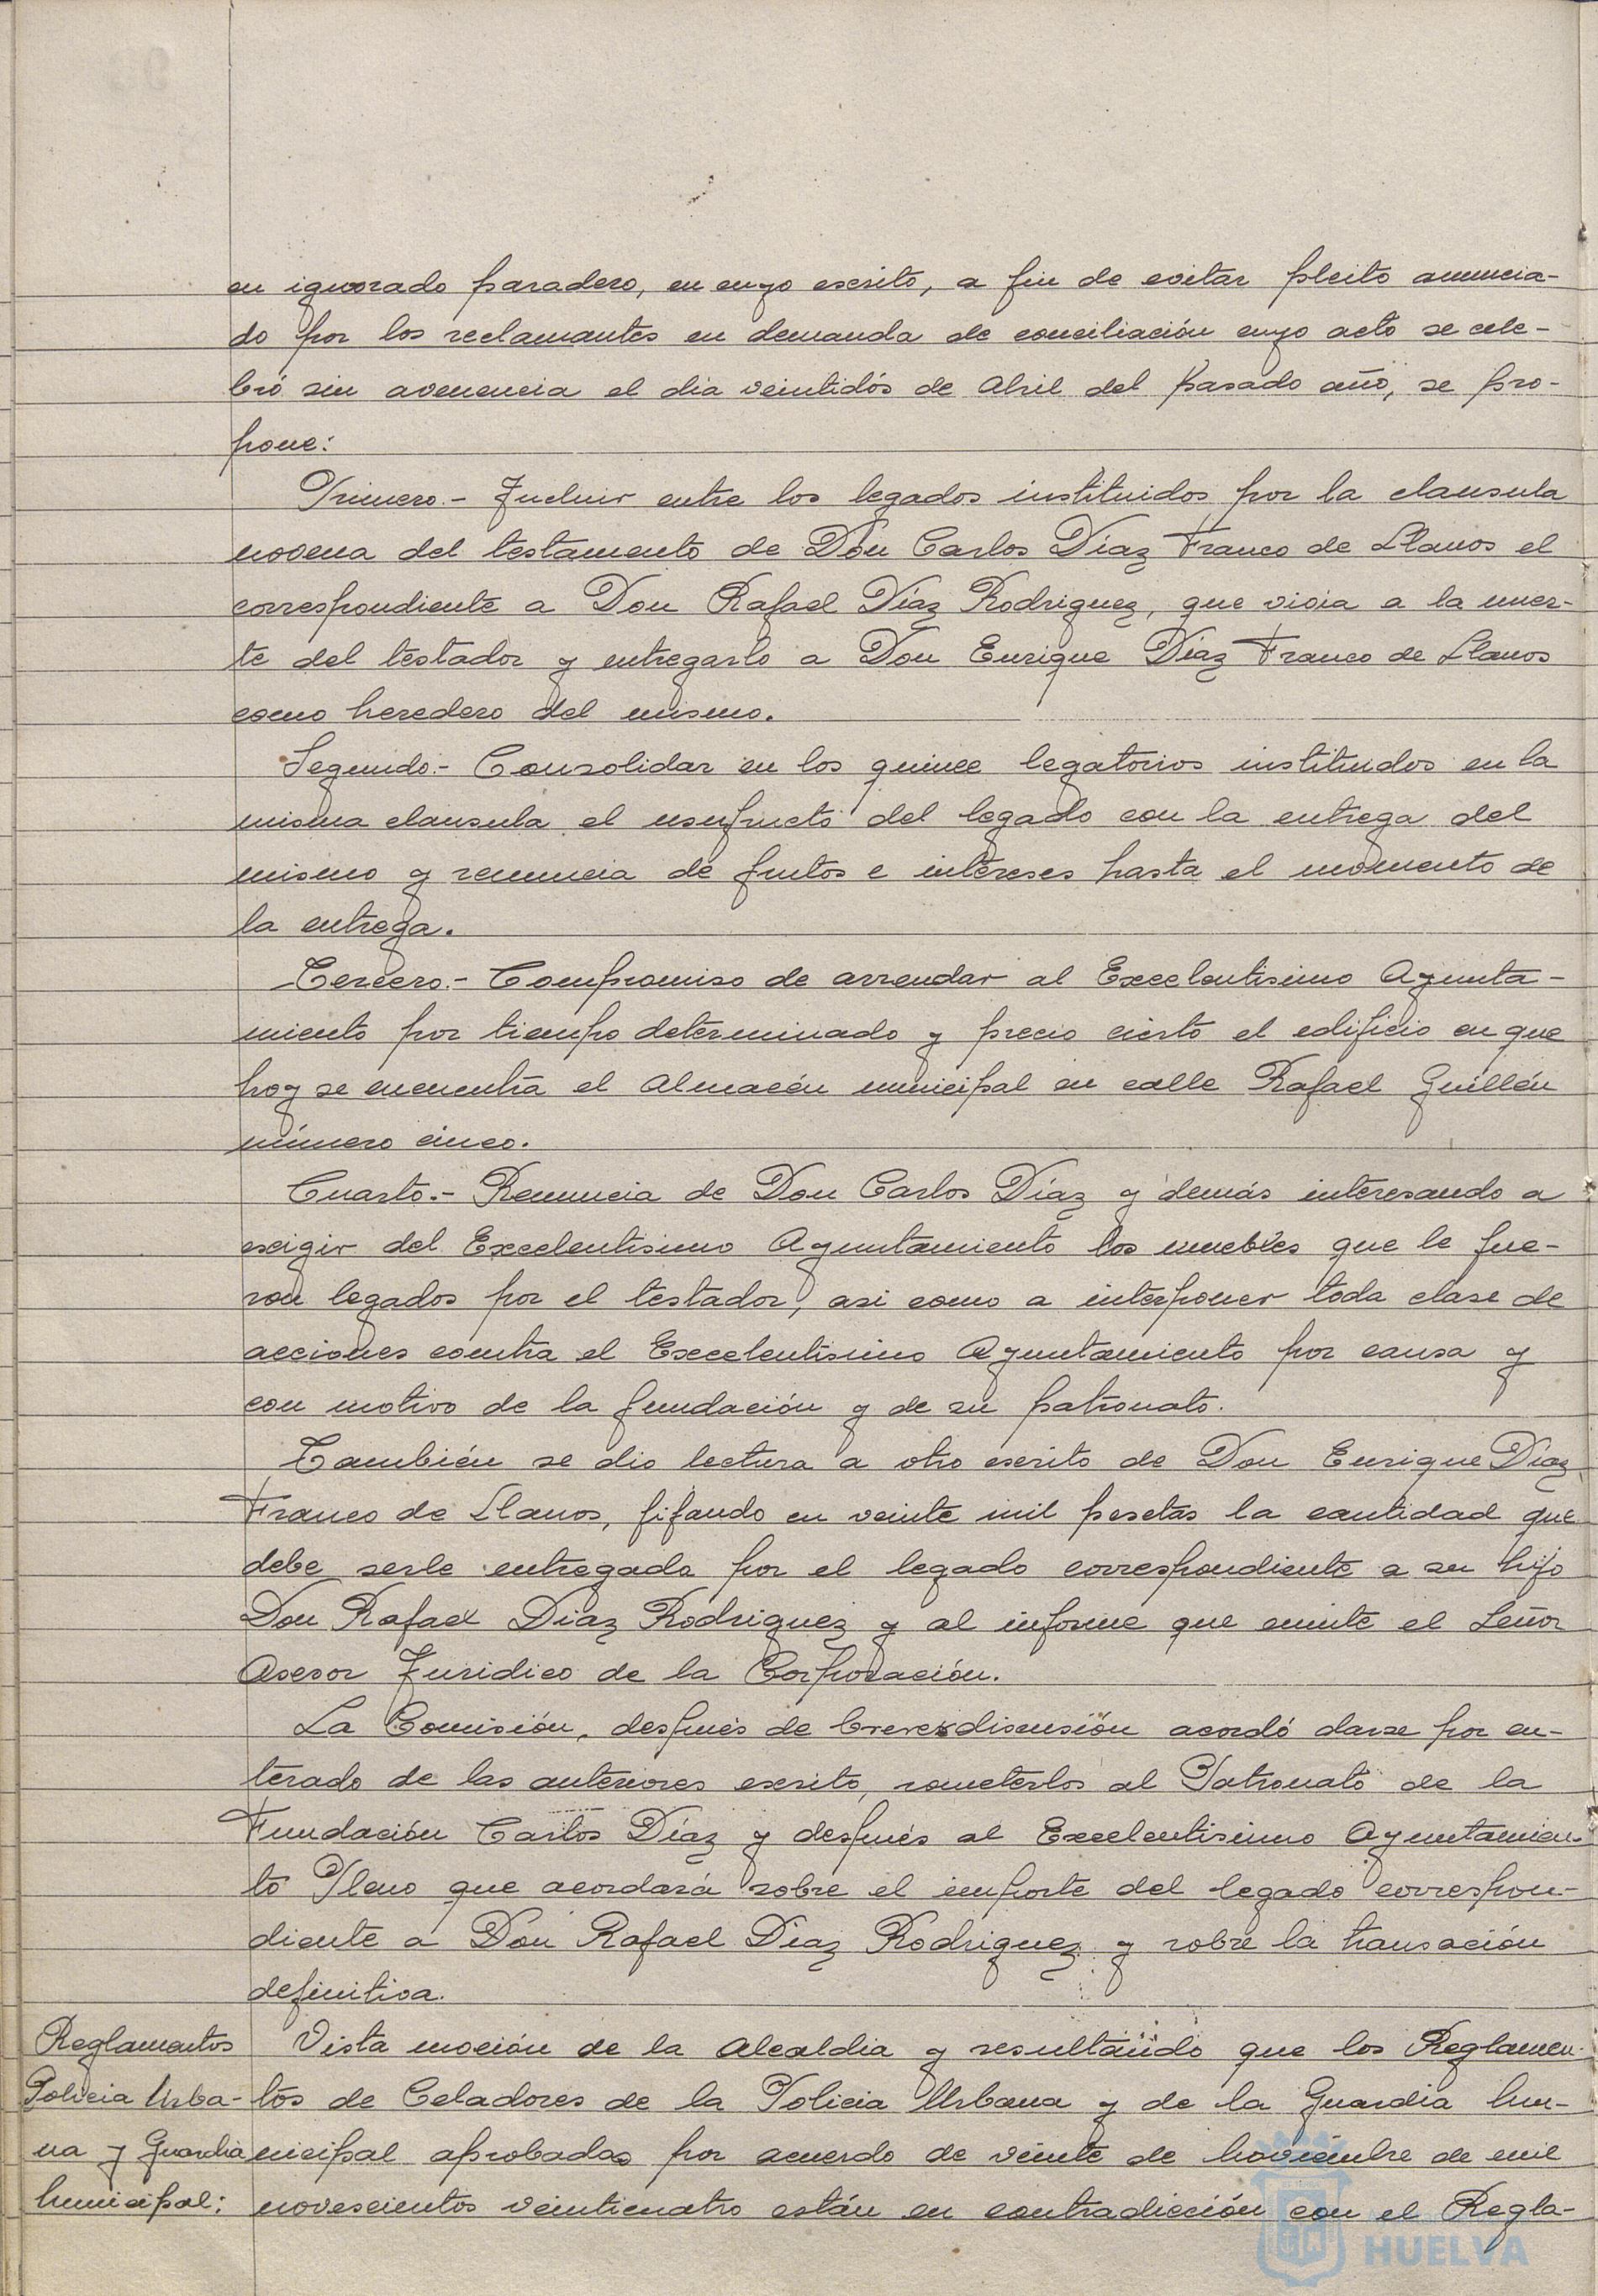 en ignorado paradero, en cuyo escrito, a fin de evitar pleito anuncia-
do por los reclamantes en demanda de conciliación cuyo acto se cele-
bró sin avenencia el dia veintidós de Abril del pasado año, se pro-
pone:
Primero.- Incluir entre los legados instituidos por la clausula
novena del testamento de Don Carlos Díaz Franco de Llanos el
correspondiente a Don Rafael Díaz Rodriguez, que vivia a la muer-
te del testador y entregarlo a Don Enrique Díaz Franco de Llanos
como heredero del mismo.
Segundo.- Consolidar en los quince legatorios instituidos en la
misma clausula el usufructo del legado con la entrega del
mismo y renuncia de frutos e intereses hasta el momento de
la entrega.
Tercero.- Compromiso de arrendar al Excelentisimo Ayunta-
miento por tiempo determinado y precio cierto el edificio en que
hoy se encuentra el Almacén municipal en calle Rafael Guillén
número cinco.
Cuarto.- Renuncia de Don Carlos Díaz y demás interesando a
exigir del Excelentisimo Ayuntamiento los muebles que le fue-
ron legados por el testador, asi como a interponer toda clase de
acciones contra el Excelentisimo Ayuntamiento por causa y
con motivo de la fundación y de su patronato.
También se dio lectura a otro escrito de Don Enrique Díaz
Franco de Llanos, fijando en veinte mil pesetas la cantidad que
debe serle entregada por el legado correspondiente a su hijo
Don Rafael Diaz Rodriguez y al informe que emite el Señor
Asesor Juridico de la Corporación.
La Comisión, después de breve discusión acordó darse por en-
terado de las anteriores escrito, someterlos al Patronato de la
Fundación Carlos Díaz y después al Excelentisimo Ayuntamien-
to Pleno que acordará sobre el importe del legado correspon-
diente a Don Rafael Diaz Rodriguez y sobre la transación
definitiva.
Reglamentos
Policia Urba-
na y Guardia
Municipal:
Vista moción de la Alcaldia y resultando que los Reglamen-
tos de Celadores de la Policia Urbana y de la Guardia Mu-
nicipal aprobados por acuerdo de veinte de Noviembre de mil
novescientos veinticuatro están en contradicción con el Regla-
HUELVA